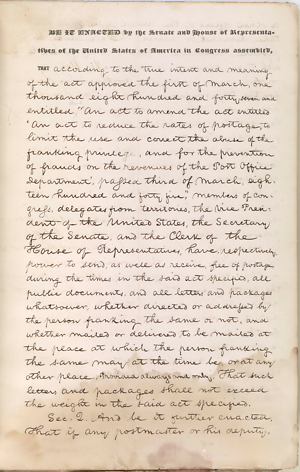 BE IT ENACTED by the Senate and House of Representa-
tives of the United States of America in Congress assembled,
THAT according to the true intent and meaning
of the act approved the first of March, one
thousand eight hundred and forty seven and
entitled "An act to amend the act entitled
'An act to reduce the rates of postage, to
limit the use and correct the abuse of the
franking privilege, and for the prevention
of frauds on the revenues of the Post Office
Department', passed third of March, eigh-
teen hundred and forty five," members of Con-
gress, delegates from territories, the Vice Presi-
dent of the United States, the Secretary
of the Senate, and the Clerk of the
House of Representatives, have, respectively,
power to send, as well as receive free of postage
during the times in the said act specified, all
public documents, and all letters and packages
whatsoever, whether directed or addressed by
the person franking the same or not, and
whether mailed or delivered to be mailed at
the place at which the person franking
the same may at the time be, or at any
other place, Provided always and only, That such
letters and packages shall not exceed
the weight in the said act specified.
Sec. 2. And be it further enacted,
That if any postmaster or his deputy,